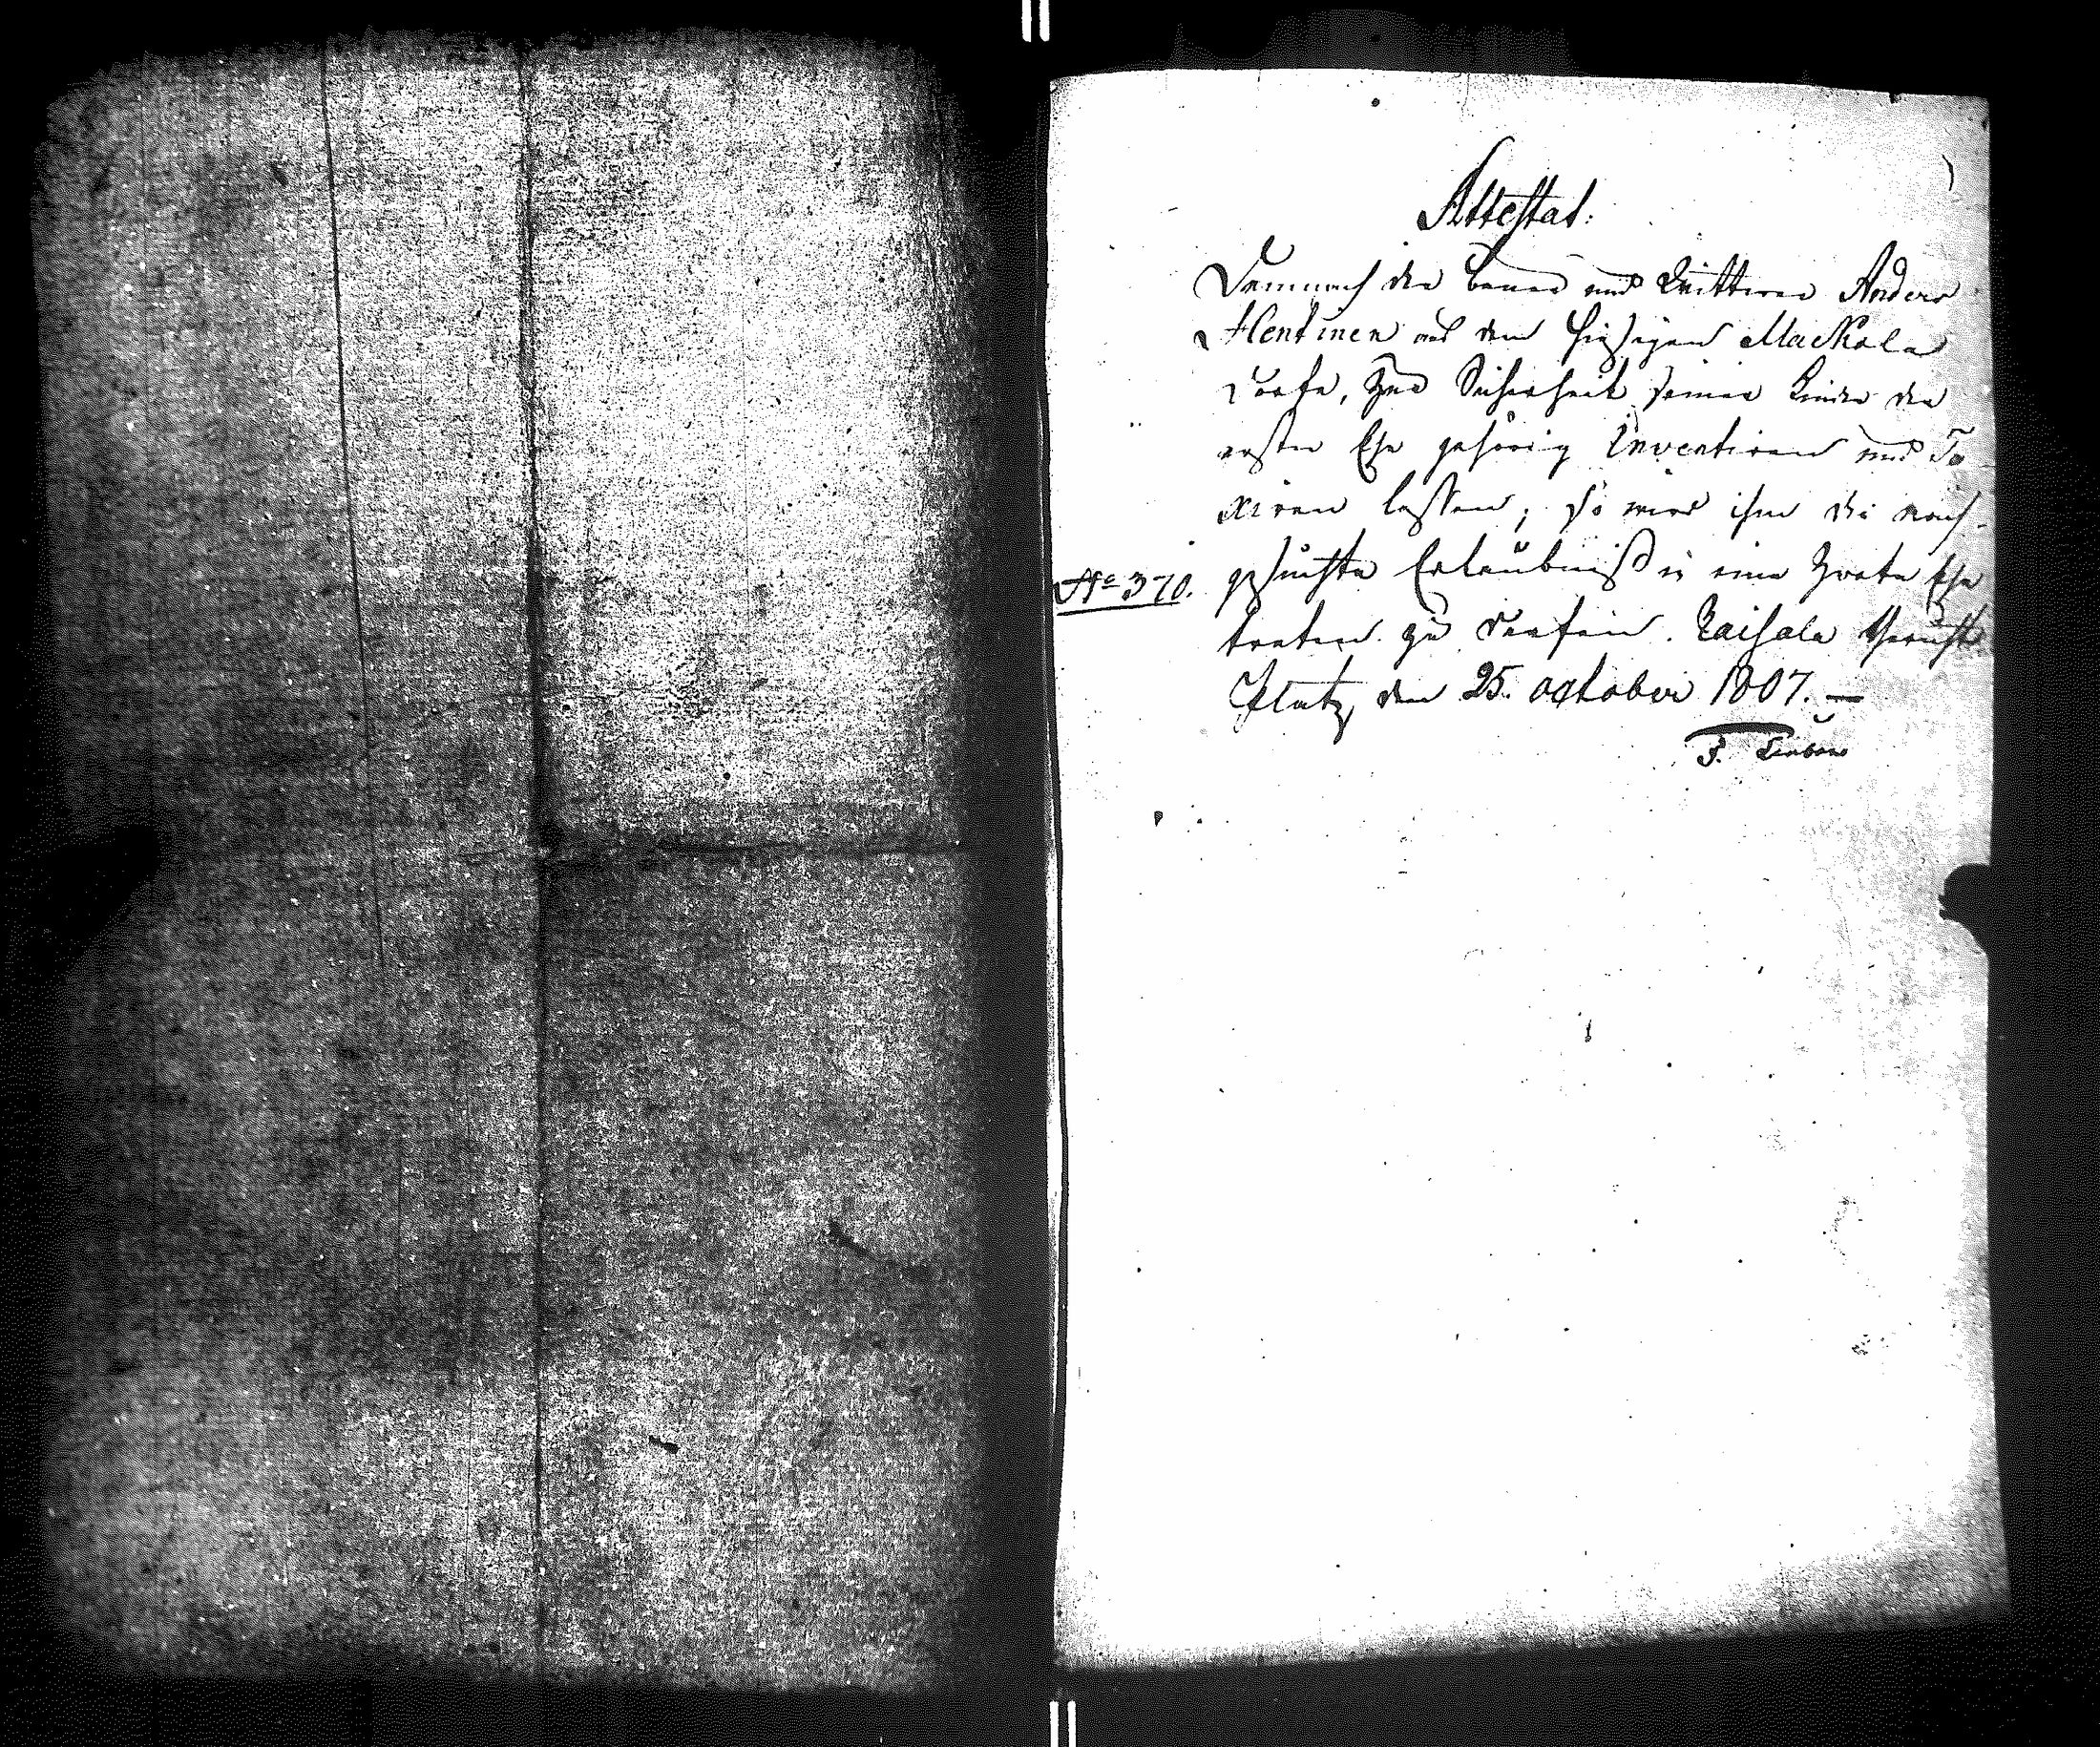 Attestat.
Demnach der Bauer und Wittwer Anders
Hentinen aus dem hiesigen Mackola
Dorfe, zur Sicherheit seiner Kinder der
ersten Ehe gehörig Inventiren und Ta
xiren lassen; so wird ihm die nach-
gesuchte Erlaubniß in eine Zwote Ehe
No 370.
treten zu dürfen. Raisala Gerichts
Platz, den 25. october 1807. —